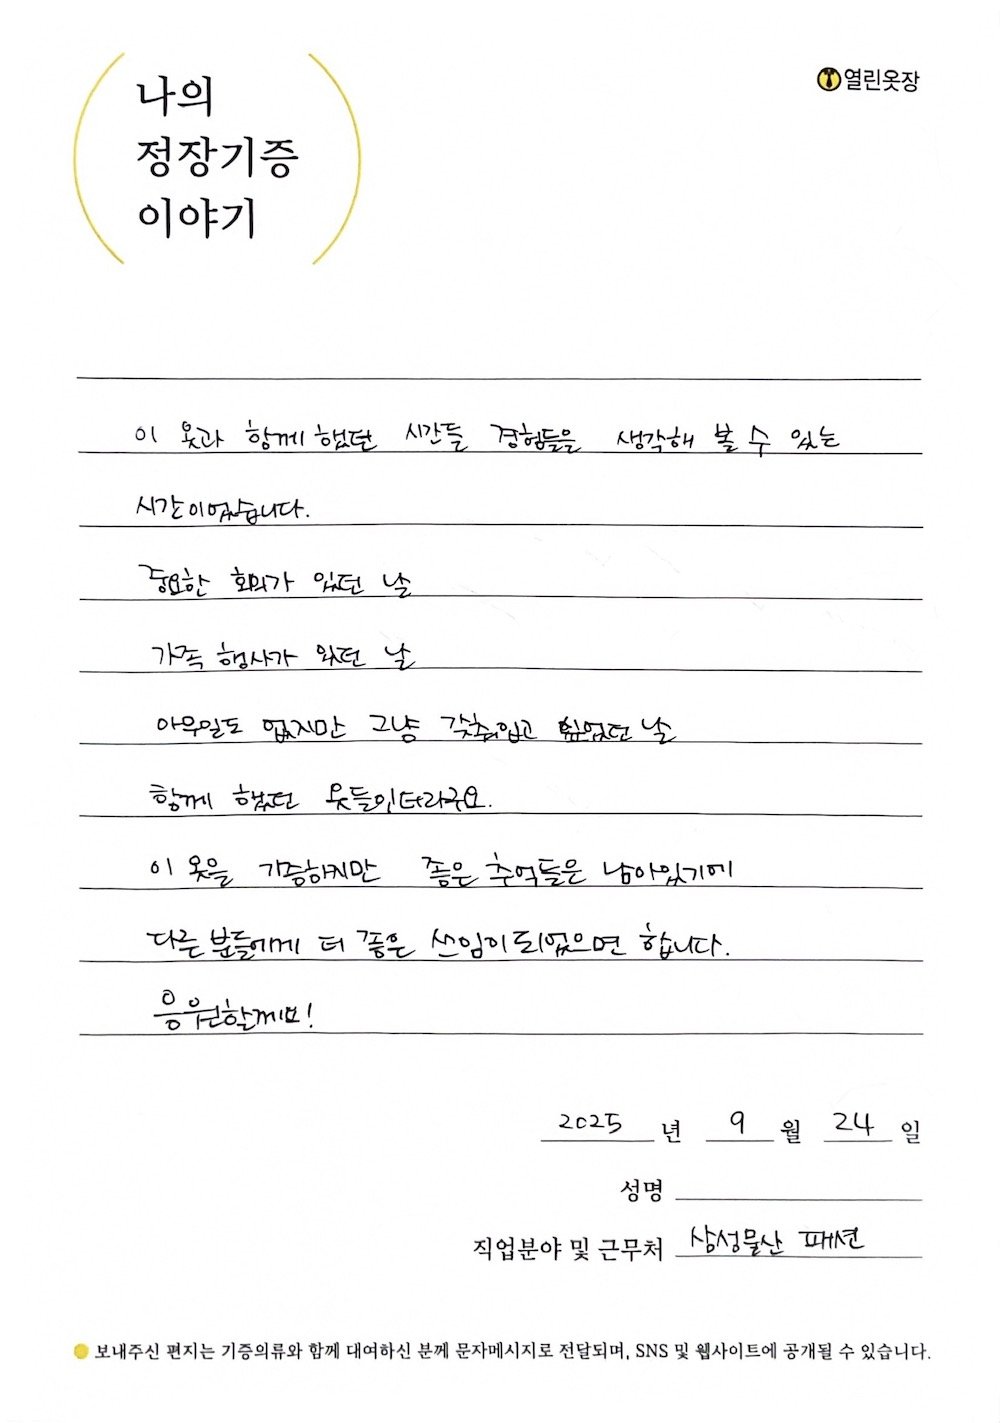 나의
정장기증
이야기
열린옷장
이 옷과 함께 했던 시간들 경험들을 생각해 볼 수 있는
시간이었습니다.
중요한 회의가 있던 날
가족 행사가 있던 날
아무일도 없지만 그냥 갖춰입고 싶었던 날
함께 했던 옷들이더라구요.
이 옷을 기증하지만 좋은 추억들은 남아있기에
다른 분들에게 더 좋은 쓰임이 되었으면 합니다.
응원할께요!
2025 년 9 월 24 일
성명
직업분야 및 근무처 삼성물산 패션
보내주신 편지는 기증의류와 함께 대여하신 분께 문자메시지로 전달되며, SNS 및 웹사이트에 공개될 수 있습니다.